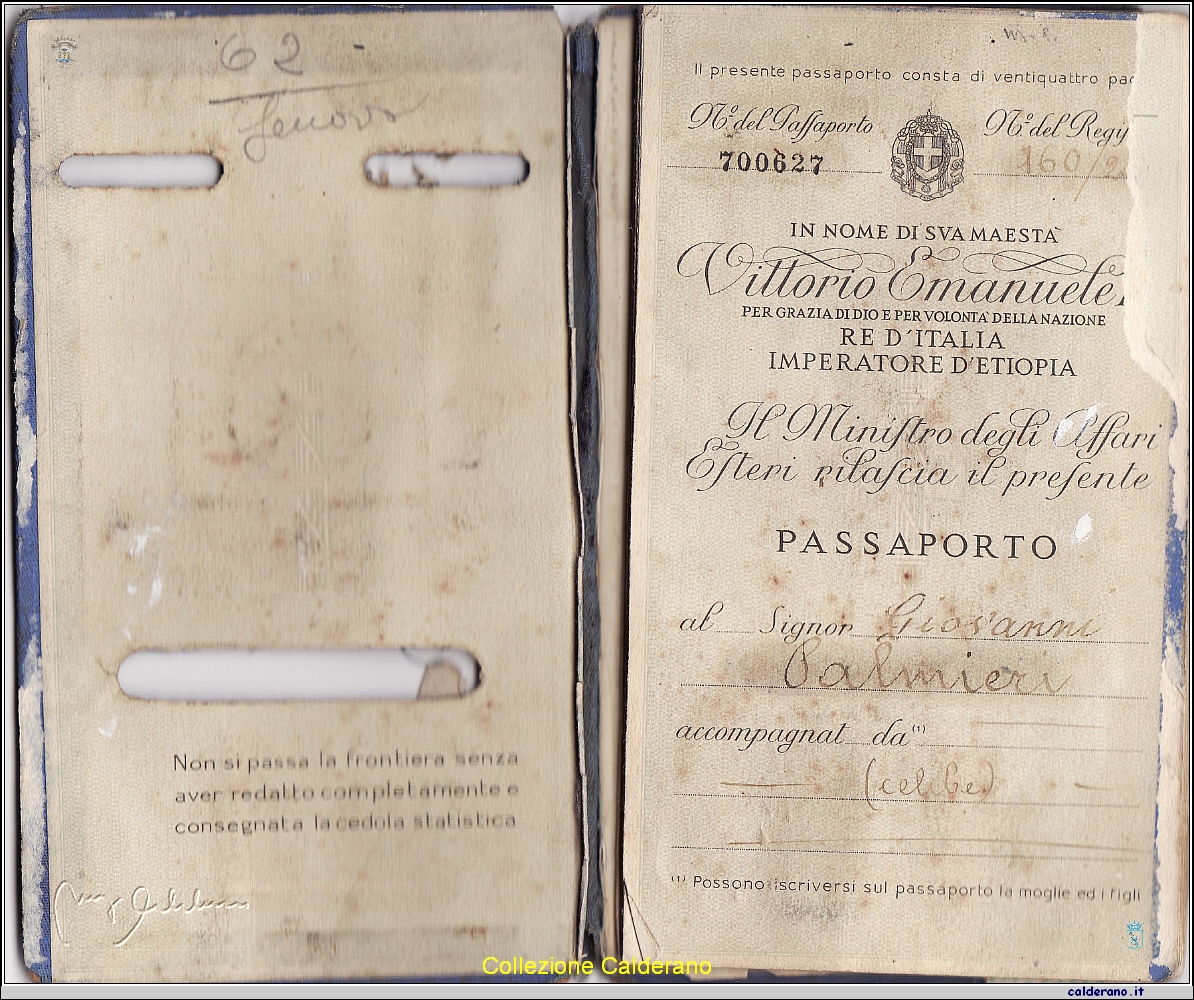 62
Genova
Non si passa la frontiera senza
aver redatto completamente e
consegnata la cedola statistica
Il presente passaporto consta di ventiquattro pag
Nº. del Passaporto
Nº. del Regi
700627
160/2
IN NOME DI SVA MAESTÀ
Vittorio Emanuele
PER GRAZIA DI DIO E PER VOLONTÀ DELLA NAZIONE
RE D'ITALIA
IMPERATORE D'ETIOPIA
Il Ministro degli Affari
Esteri rilascia il presente
PASSAPORTO
al Signor Giovanni
Palmieri
accompagnat da (1)
(celibe)
(1) Possono iscriversi sul passaporto la moglie ed i figli
Collezione Calderano
calderano.it